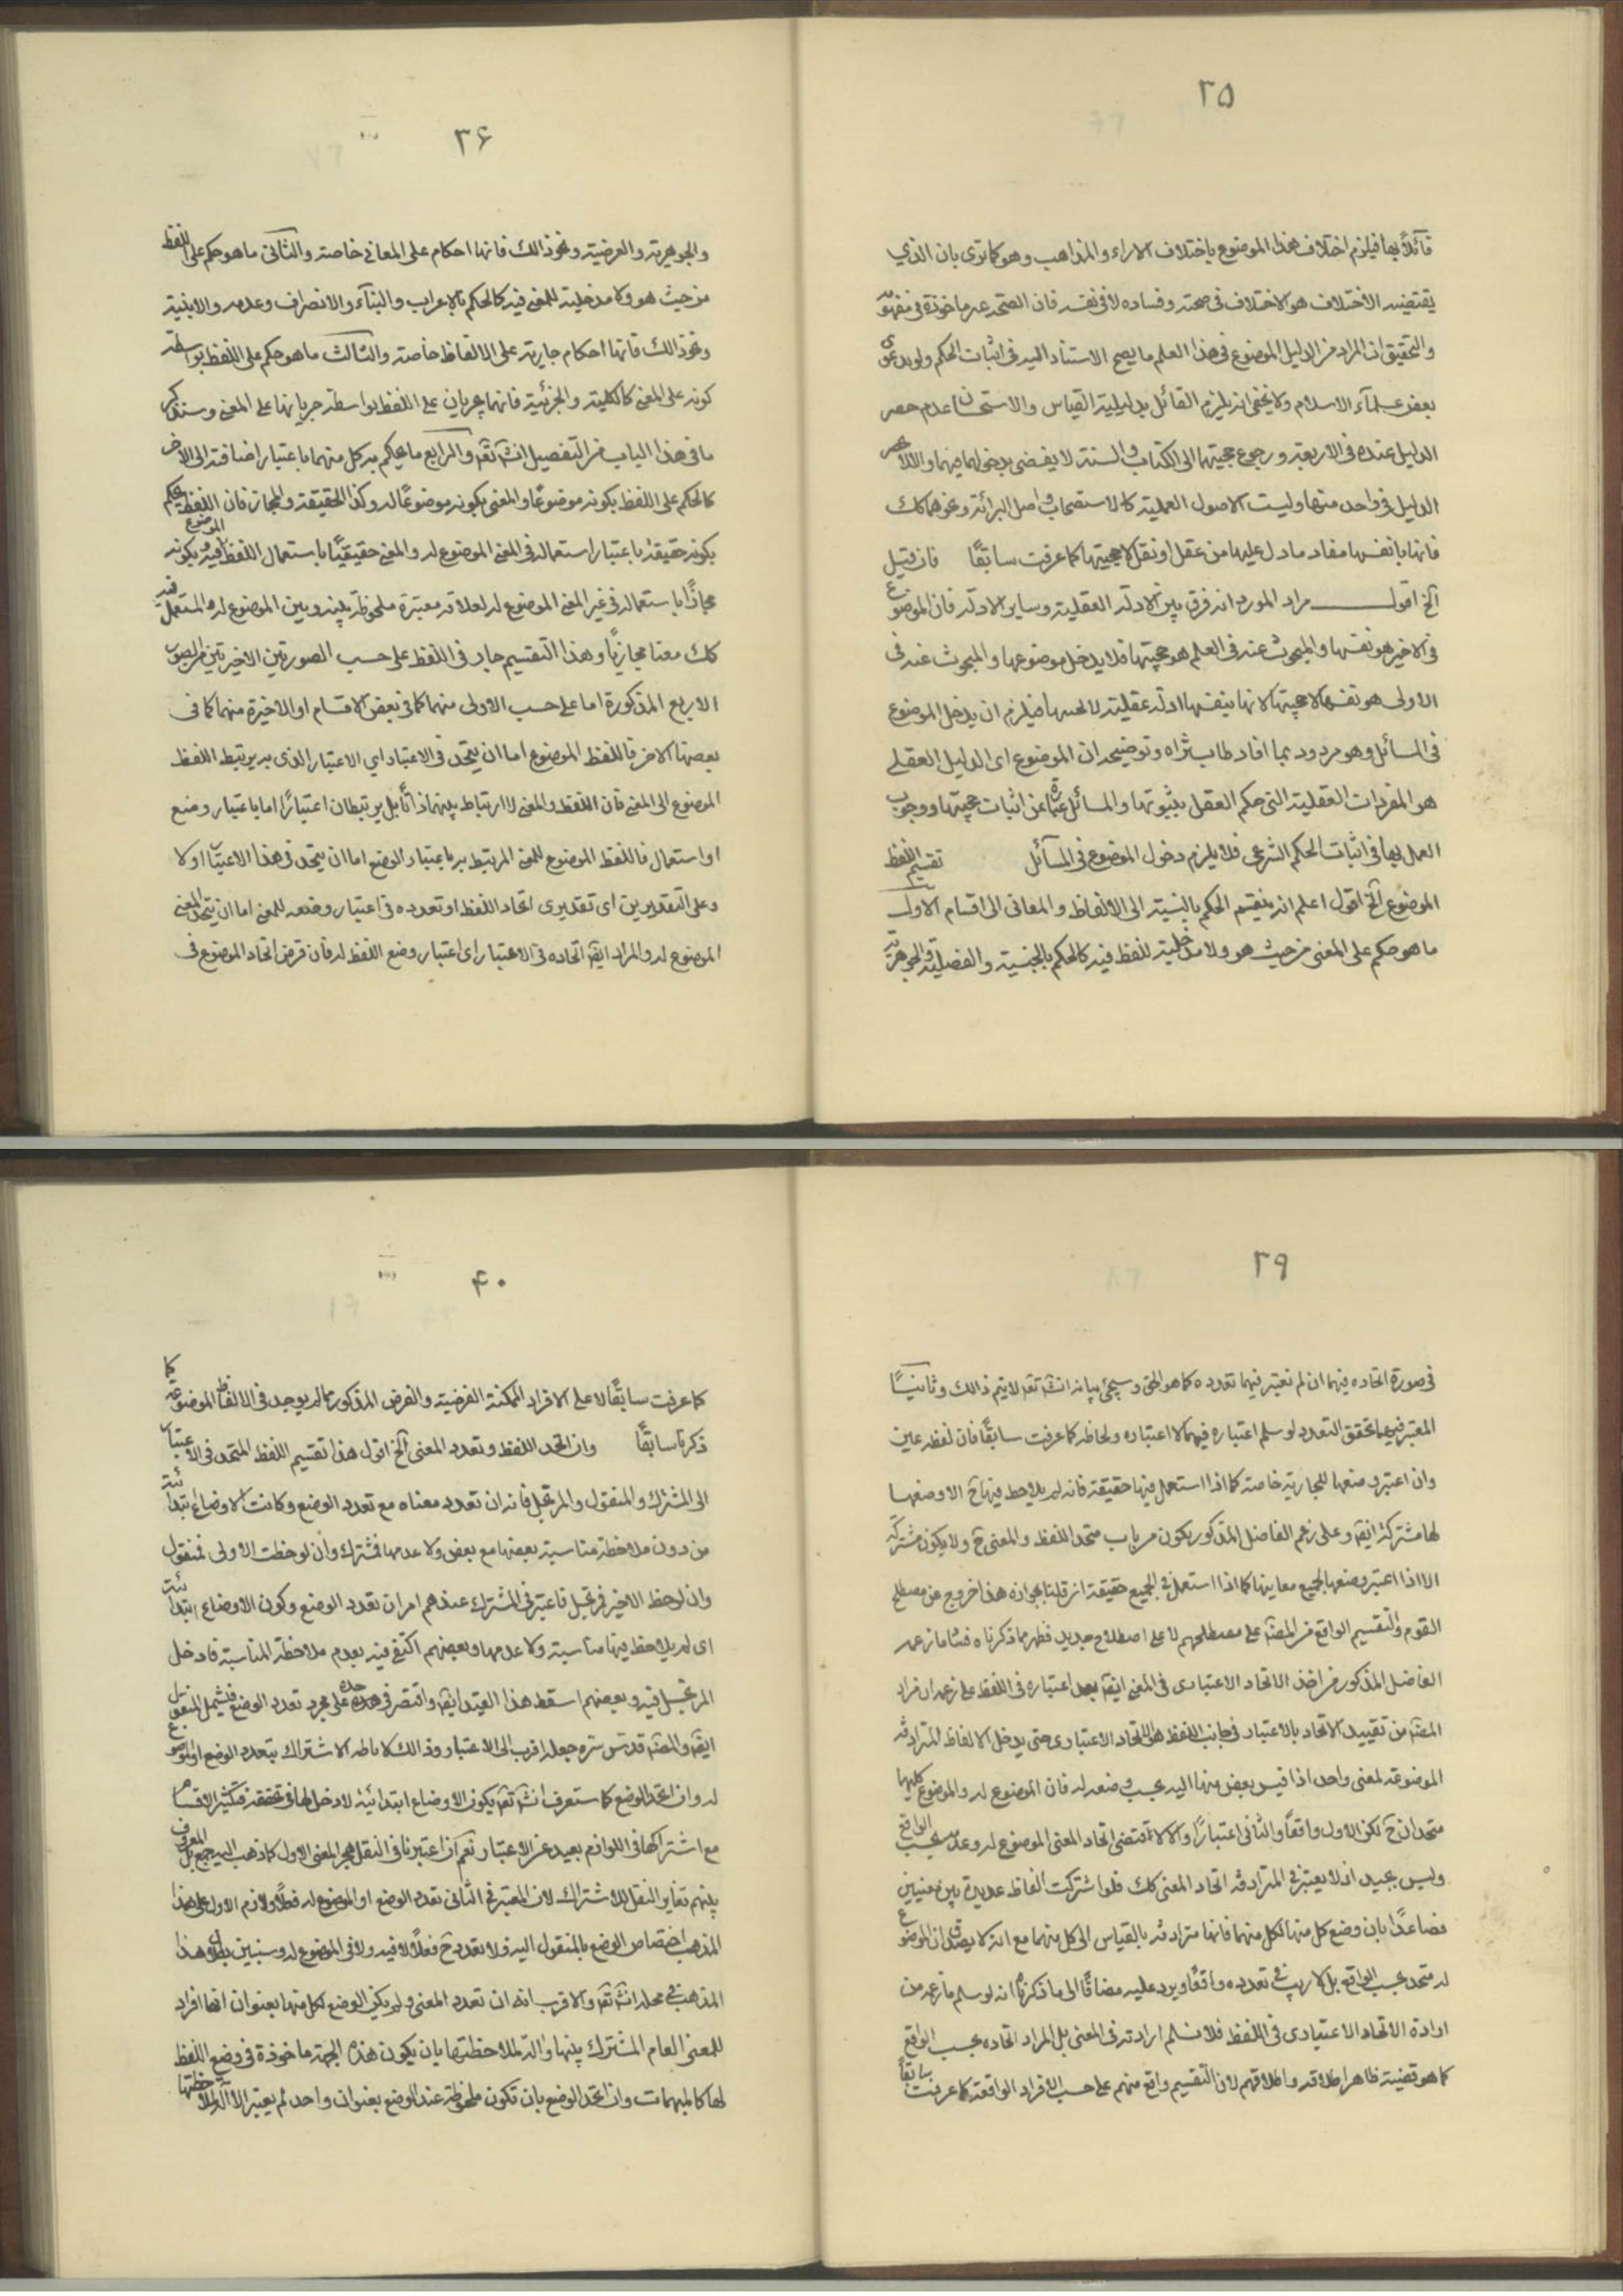 ٣٥
قائلاً بها فيلزم اختلاف هذا الموضوع باختلاف الاراء والمذاهب وهو كما ترى بان الذي
يقتضيه الاختلاف هو الاختلاف في صحته وفساده لا في نفسه فان الصحة غير ماخوذة في مفهومه
والتحقيق ان المراد من الدليل الموضوع في هذا العلم ما يصح الاستناد اليه في اثبات الحكم ولو بدعوى
بعض علمآء الاسلام ولا يخفى انه يلزم القائل بدليلية القياس والاستحسان عدم حصر
الدليل عنده في الاربعة ورجوع حجيتهما الى الكتاب والسنة لا يفضى بدخولهما فيهما والا لانحصر
الدليل في واحد منها وليست الاصول العملية كالاستصحاب واصل البرائة ونحوهما كك
فانها بانفسها مفاد ما دل عليها من عقل او نقل لا حجيتها كما عرفت سابقًا فان قيل
الخ اقول مراد المورد انه فرق بين الادلة العقلية وساير الادلة فان الموضوع
في الاخير هو نفسها والمبحوث عنه في العلم هو حجيتها فلا يدخل موضوعها والمبحوث عنه في
الاولى هو نفسها لا حجيتها لانها بنفسها ادلة عقلية فيلزم ان يدخل الموضوع
في المسائل وهو مردود بما افاد طاب ثراه وتوضيحه ان الموضوع اى الدليل العقلي
هو المفردات العقلية التى حكم العقل بثبوتها والمسائل عبارة عن اثبات حجيتها ووجوب
العمل بها في اثبات الحكم الشرعي فلا يلزم دخول الموضوع في المسآئل تقسيم اللفظ
الموضوع الخ اقول اعلم انه ينقسم الحكم بالنسبة الى الالفاظ والمعانى الى اقسام الاول
ما هو حكم على المعنى من حيث هو ولا مدخلية للفظ فيه كالحكم بالجنسية والفصلية والجوهرية
٣۶
والجوهرية والعرضية ونحو ذالك فانها احكام على المعاني خاصة والثانى ما هو حكم على اللفظ
من حيث هو ولا مدخلية للمعنى فيه كالحكم بالاعراب والبنآء والانصراف وعدمه والابنية
ونحو ذالك فانها احكام جارية على الالفاظ خاصة والثالث ما هو حكم على اللفظ بواسطة
كونه على المعنى كالكلية والجزئية فانهما يجريان على اللفظ بواسطة جريانها على المعنى وسنذكر
ما في هذا الباب من التفصيل انشه تقه والرابع ما يحكم به كل منهما باعتبار اضافته الى الاخر
كالحكم على اللفظ بكونه موضوعًا والمعنى بكونه موضوعًا له وكذا الحقيقة والمجاز فان اللفظ يحكم
بكونه حقيقة باعتبار استعماله في المعنى الموضوع له والمعنى حقيقيًا باستعمال اللفظ الموضوع فيه وبكونه
مجازًا باستعماله في غير المعنى الموضوع له لعلاقة معتبرة ملحوظة بينه وبين الموضوع له والمستعمل فيه
كك معنا مجازيًا وهذا التقسيم جار في اللفظ على حسب الصورتين الاخيرتين من الصور
الاربع المذكورة اما على حسب الاولى منهما كما في بعض الاقسام او الاخيرة منهما كما في
بعضها الاخر فاللفظ الموضوع اما ان يتحد في الاعتبار اي الاعتبار الذى به يرتبط اللفظ
الموضوع الى المعنى فان اللفظ والمعنى لا ارتباط بينهما ذاتًا بل يرتبطان اعتبارًا اما باعتبار وضع
او استعمال فاللفظ الموضوع للمعنى المرتبط به باعتبار الوضع اما ان يتحد في هذا الاعتبار او لا
وعلى التقديرين اى تقديرى اتحاد اللفظ او تعدده في اعتبار وضعه للمعنى اما ان يتحد المعنى
الموضوع له والمراد ايضه اتحاده في الاعتبار اى اعتبار وضع اللفظ له فان فرض اتحاد الموضوع في
٣٩
في صورة اتحاده فيهما ان لم نعتبر فيهما تعدده كما هو الحق وسيجئ بيانه انشه تقه لا يتم ذالك وثانيًا
المعتبر فيهما تحقق التعدد لو سلم اعتباره فيهما لا اعتباره ولحاظه كما عرفت سابقًا فان لفظ عين
وان اعتبر وضعها للجارية خاصة كما اذا استعمل فيها حقيقة فانه لم يلاحظ فيها ح الا وضعها
لها مشتركة ايضه وعلى زعم الفاضل المذكور يكون من باب متحد اللفظ والمعنى ح ولا يكون مشتركة
الا اذا اعتبر وضعها لجميع معاينها كما اذا استعمل في الجميع حقيقة ان قلنا بجوازه هذا خروج عن مصطلح
القوم والتقسيم الواقع من المصه على مصطلحهم لا على اصطلاح جديد فظهر مما ذكرناه فساد ما زعمه
الفاضل المذكور من اخذ الاتحاد الاعتبارى في المعنى ايضه بعد اعتباره في اللفظ على زعمه ان مراد
المصه من تقييد الاتحاد بالاعتبار في جانب اللفظ هو الاتحاد الاعتبارى حتى يدخل الالفاظ المترادفة
الموضوعة لمعنى واحد اذا قيس بعض منها اليه بحسب وضعه له فان الموضوع له والموضوع كليهما
متحدان ح لكن الاول واقعًا والثاني اعتبارًا والا لاقتضى اتحاد المعنى الموضوع له وعدمه بحسب الواقع
وليس بجيد اذ لا يعتبر في المترادفة اتحاد المعنى كك فلو اشتركت الفاظ عديدة بين معنيين
فصاعدًا بان وضع كل منها لكل منهما فانها مترادفة بالقياس الى كل منهما مع انه لا يصدق ان الموضوع
له متحد بحسب الواقع بل لا ريب في تعدده واقعًا ويرد عليه مضافًا الى ما ذكرنا انه لو سلم ما زعمه من
ارادة الاتحاد الاعتبارى في اللفظ فلا نسلم ارادته في المعنى بل المراد اتحاده بحسب الواقع
كما هو قضية ظاهر اطلاقه واطلاقهم لان التقسيم واقع منهم على حسب الافراد الواقعة كما عرفت سابقًا
۴٠
كما عرفت سابقًا لا على الافراد الممكنة الفرضية والفرض المذكور مما لم يوجد في الالفاظ الموضوعة كما
ذكرنا سابقًا وان اتحد اللفظ وتعدد المعنى الخ اقول هذا تقسيم اللفظ المتحد في الاعتبار
الى المشترك والمنقول والمرتجل فانه ان تعدد معناه مع تعدد الوضع وكانت الاوضاع ابتدائية
من دون ملاحظة مناسبة بعضها مع بعض ولا عدمها فمشترك وان لوحظت الاولى فمنقول
وان لوحظ الاخير فمرتجل فاعتبر في المشترك عندهم امران تعدد الوضع وكون الاوضاع ابتدائية
اى لم يلاحظ فيها مناسبة ولا عدمها وبعضهم اكتفى فيه بعدم ملاحظة المناسبة فادخل
المرتجل فيه وبعضهم اسقط هذا القيد ايضه واقتصر في حده على مجرد تعدد الوضع فيشمل المنقول
ايضه والمصه قدس سره جعله اقرب الى الاعتبار وذالك لاناطة الاشتراك بتعدد الوضع او الموضوع
له وان اتحد الوضع كما ستعرف انشه تقه بكون الاوضاع ابتدائية لا دخل لها في تحققه فتكثير الاقسام
مع اشتراكها في اللوازم بعيد عن الاعتبار نعم ان اعتبرنا في النقل هجر المعنى الاول كما ذهب اليه جمع بل المعروف
بينهم تغاير النقل للاشتراك لان المعتبر في الثانى تعدد الوضع او الموضوع له فعلاً ولازم الاول على هذا
المذهب اختصاص الوضع بالمنقول اليه ولا تعدد ح فعلاً لا فيه ولا في الموضوع له وسنبين بطلان هذا
المذهب في محله انشه تقه والاقرب انه ان تعدد المعنى ولم يكن الوضع لكل منها بعنوان انها افراد
للمعنى العام المشترك بينها والة لملاحظتها بان يكون هذه الجهة ماخوذة في وضع اللفظ
لها كالمبهمات وان اتحد الوضع بان تكون ملحوظة عند الوضع بعنوان واحد لم يعتبر الا آلة لملاحظتها